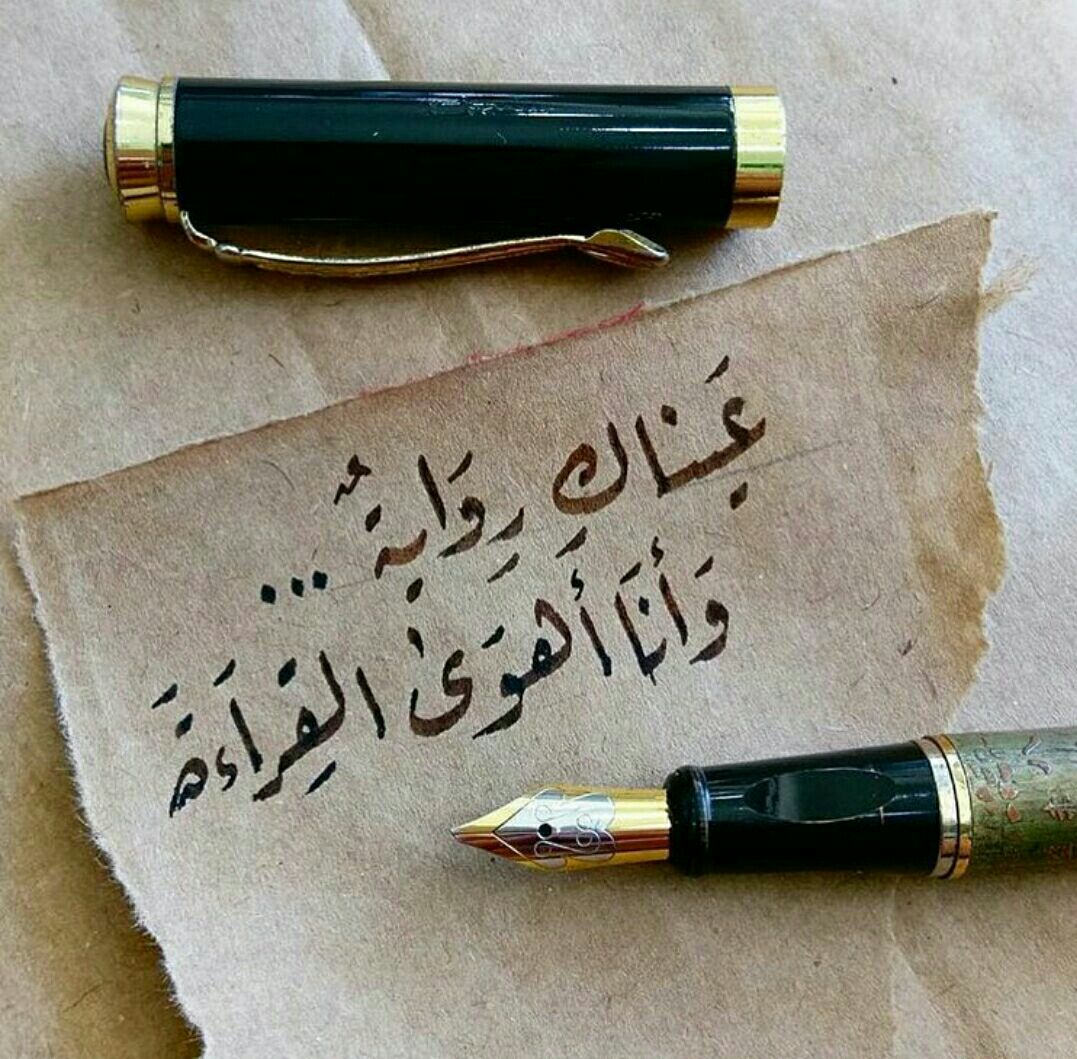 عَيناكِ رِوَايةٌ ...
وَأَنَا أَهوَىٰ القِرَاءَةَ